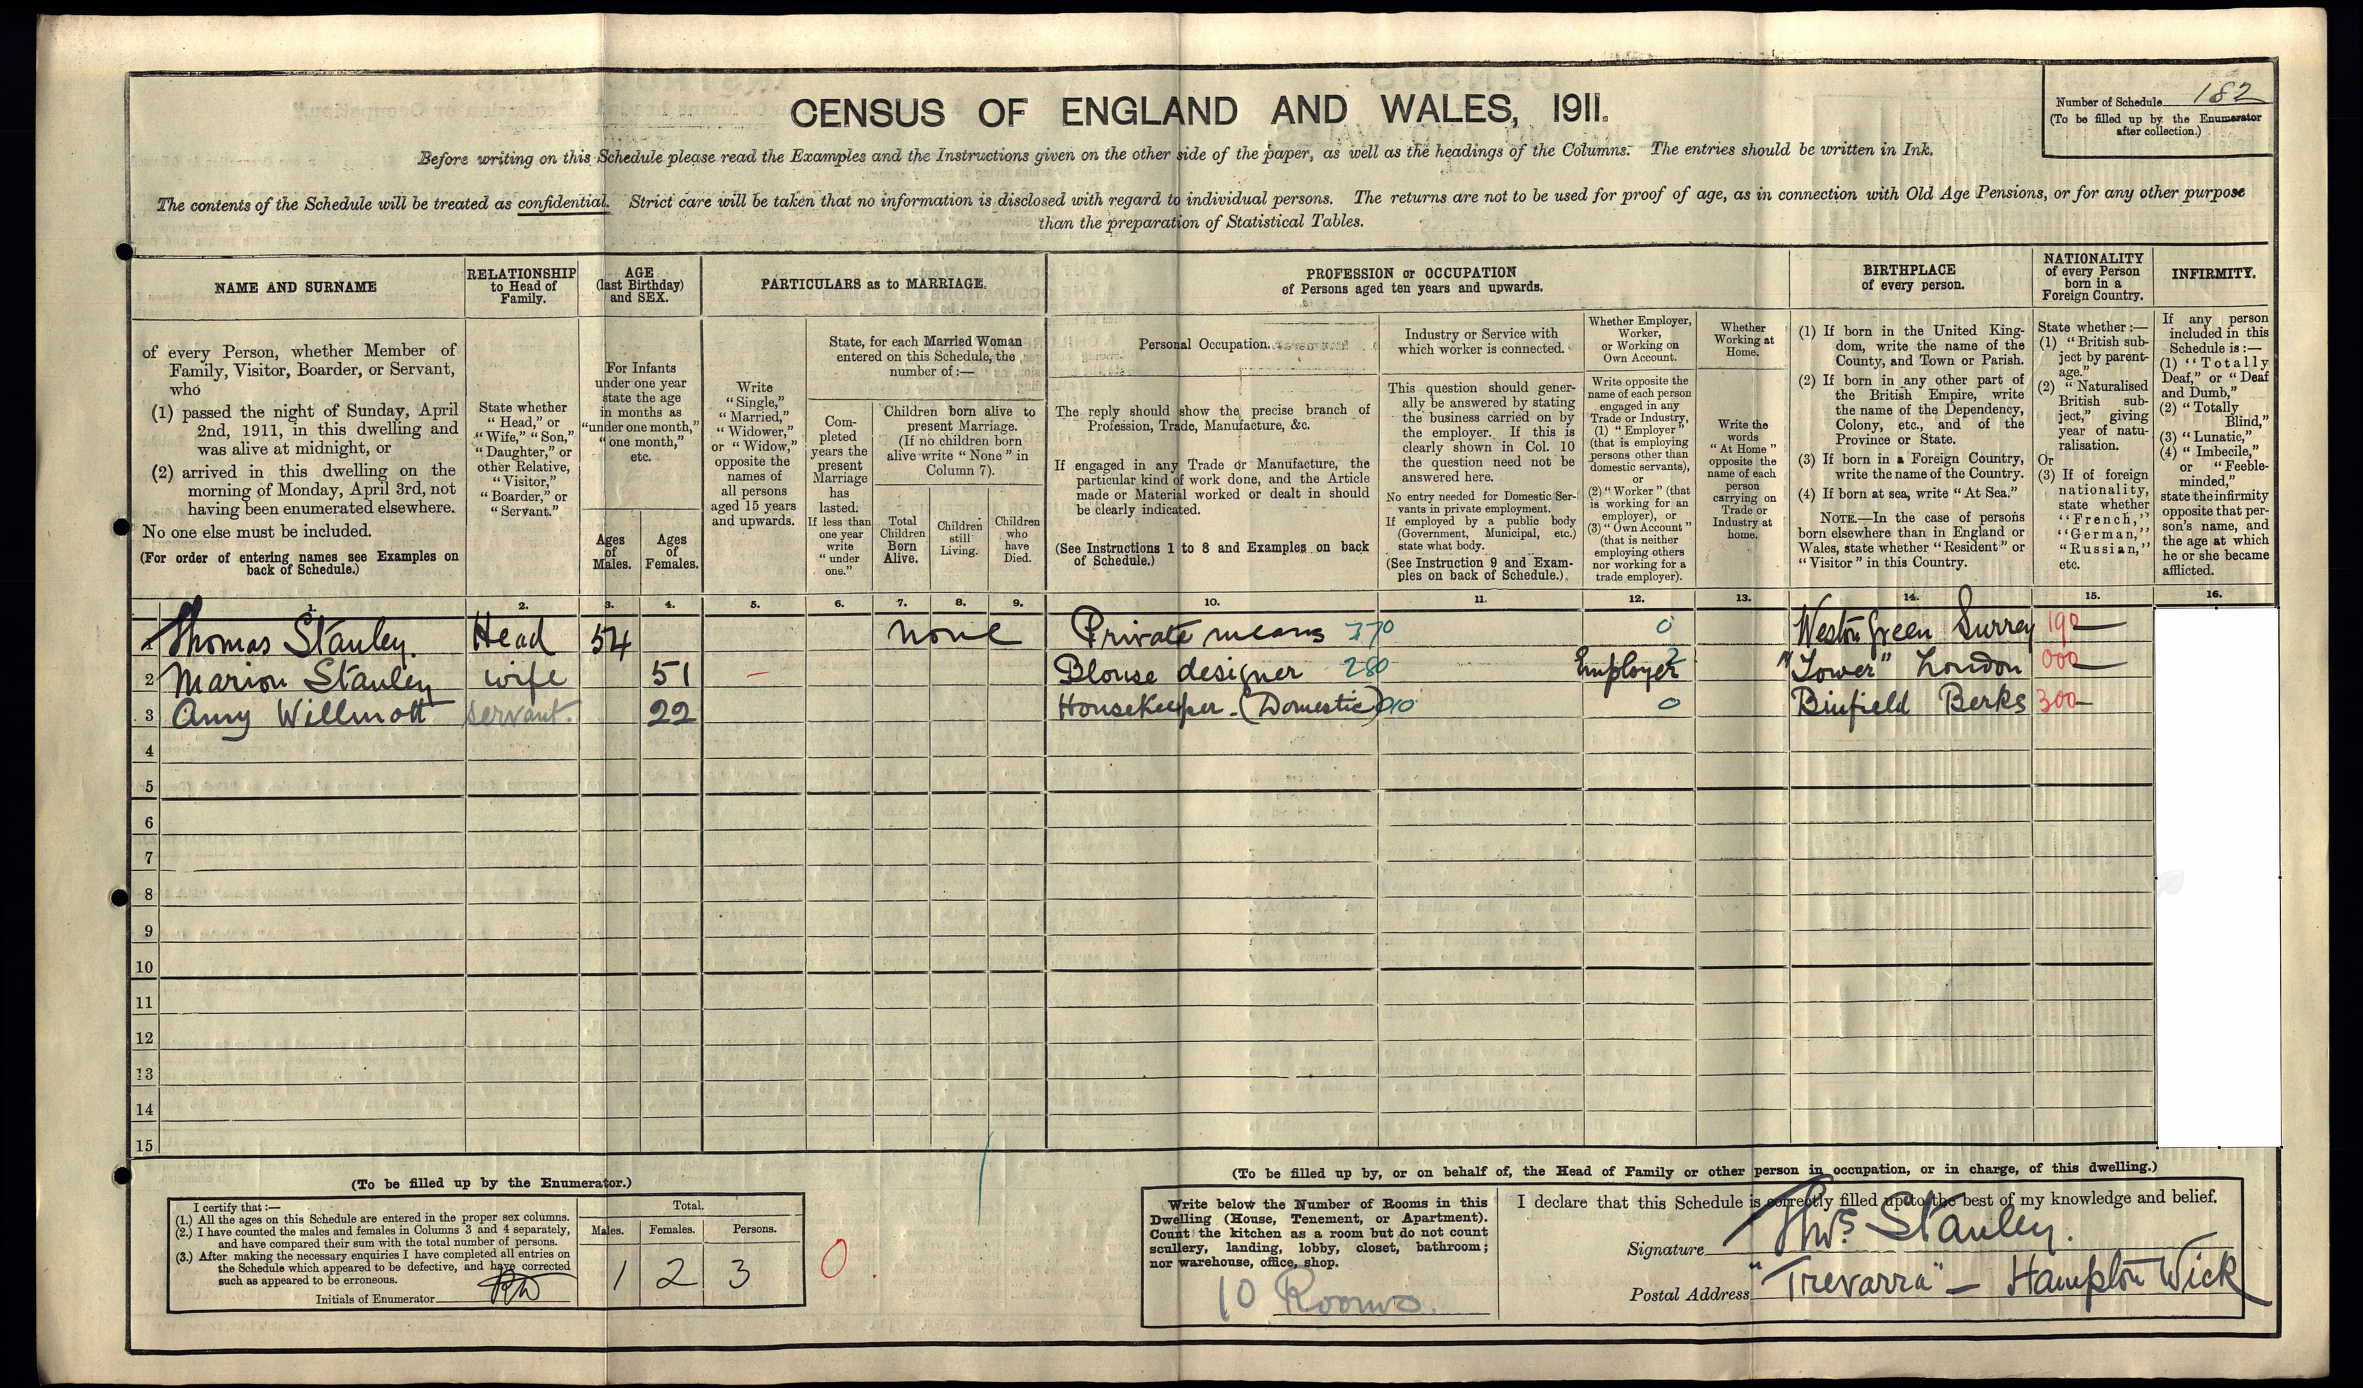 CENSUS OF ENGLAND AND WALES, 1911.
Number of Schedule 182
(To be filled up by the Enumerator
after collection.)
Before writing on this Schedule please read the Examples and the Instructions given on the other side of the paper, as well as the headings of the Columns. The entries should be written in Ink.
The contents of the Schedule will be treated as confidential. Strict care will be taken that no information is disclosed with regard to individual persons. The returns are not to be used for proof of age, as in connection with Old Age Pensions, or for any other purpose
than the preparation of Statistical Tables.
NAME AND SURNAME
of every Person, whether Member of
Family, Visitor, Boarder, or Servant,
who
(1) passed the night of Sunday, April
2nd, 1911, in this dwelling and
was alive at midnight, or
(2) arrived in this dwelling on the
morning of Monday, April 3rd, not
having been enumerated elsewhere.
No one else must be included.
(For order of entering names see Examples on
back of Schedule.)
RELATIONSHIP
to Head of
Family.
State whether
"Head," or
"Wife," "Son,"
"Daughter," or
other Relative,
"Visitor,"
"Boarder," or
"Servant."
AGE
(last Birthday)
and SEX.
For Infants
under one year
state the age
in months as
"under one month,"
"one month,"
etc.
Ages
of
Males.
Ages
of
Females.
PARTICULARS as to MARRIAGE.
Write
"Single,"
"Married,"
"Widower,"
or "Widow,"
opposite the
names of
all persons
aged 15 years
and upwards.
State, for each Married Woman
entered on this Schedule, the
number of :—
Com-
pleted
years the
present
Marriage
has
lasted.
If less than
one year
write
"under
one."
Children born alive to
present Marriage.
(If no children born
alive write "None" in
Column 7).
Total
Children
Born
Alive.
Children
still
Living.
Children
who
have
Died.
PROFESSION or OCCUPATION
of Persons aged ten years and upwards.
Personal Occupation.
The reply should show the precise branch of
Profession, Trade, Manufacture, &c.
If engaged in any Trade or Manufacture, the
particular kind of work done, and the Article
made or Material worked or dealt in should
be clearly indicated.
(See Instructions 1 to 8 and Examples on back
of Schedule.)
Industry or Service with
which worker is connected.
This question should gener-
ally be answered by stating
the business carried on by
the employer. If this is
clearly shown in Col. 10
the question need not be
answered here.
No entry needed for Domestic Ser-
vants in private employment.
If employed by a public body
(Government, Municipal, etc.)
state what body.
(See Instruction 9 and Exam-
ples on back of Schedule.)
Whether Employer,
Worker,
or Working on
Own Account.
Write opposite the
name of each person
engaged in any
Trade or Industry,
(1) "Employer"
(that is employing
persons other than
domestic servants),
or
(2) "Worker" (that
is working for an
employer), or
(3) "Own Account"
(that is neither
employing others
nor working for a
trade employer).
Whether
Working at
Home.
Write the
words
"At Home"
opposite the
name of each
person
carrying on
Trade or
Industry at
home.
BIRTHPLACE
of every person.
(1) If born in the United King-
dom, write the name of the
County, and Town or Parish.
(2) If born in any other part of
the British Empire, write
the name of the Dependency,
Colony, etc., and of the
Province or State.
(3) If born in a Foreign Country,
write the name of the Country.
(4) If born at sea, write "At Sea."
NOTE.—In the case of persons
born elsewhere than in England or
Wales, state whether "Resident" or
"Visitor" in this Country.
NATIONALITY
of every Person
born in a
Foreign Country.
State whether :—
(1) "British sub-
ject by parent-
age."
(2) "Naturalised
British sub-
ject," giving
year of natu-
ralisation.
Or
(3) If of foreign
nationality,
state whether
"French,"
"German,"
"Russian,"
etc.
INFIRMITY.
If any person
included in this
Schedule is :—
(1) "Totally
Deaf," or "Deaf
and Dumb,"
(2) "Totally
Blind,"
(3) "Lunatic,"
(4) "Imbecile,"
or "Feeble-
minded,"
state the infirmity
opposite that per-
son's name, and
the age at which
he or she became
afflicted.
1. 2. 3. 4. 5. 6. 7. 8. 9. 10. 11. 12. 13. 14. 15. 16.
1 Thomas Stanley. Head 54 none Private means 370 0 Weston Green Surrey 190
2 Marion Stanley wife 51 — Blouse designer 280 Employer 2 "Tower" London 000
3 Amy Willmott servant. 22 HouseKeeper (Domestic) 010 0 Binfield Berks 300
4
5
6
7
8
9
10
11
12
13
14
15
(To be filled up by the Enumerator.)
I certify that :—
(1.) All the ages on this Schedule are entered in the proper sex columns.
(2.) I have counted the males and females in Columns 3 and 4 separately,
and have compared their sum with the total number of persons.
(3.) After making the necessary enquiries I have completed all entries on
the Schedule which appeared to be defective, and have corrected
such as appeared to be erroneous.
Initials of Enumerator
Total.
Males. Females. Persons.
1 2 3
0.
(To be filled up by, or on behalf of, the Head of Family or other person in occupation, or in charge, of this dwelling.)
Write below the Number of Rooms in this
Dwelling (House, Tenement, or Apartment).
Count the kitchen as a room but do not count
scullery, landing, lobby, closet, bathroom;
nor warehouse, office, shop.
10 Rooms.
I declare that this Schedule is correctly filled up to the best of my knowledge and belief.
Signature Thos. Stanley.
Postal Address "Trevarra" — Hampton Wick